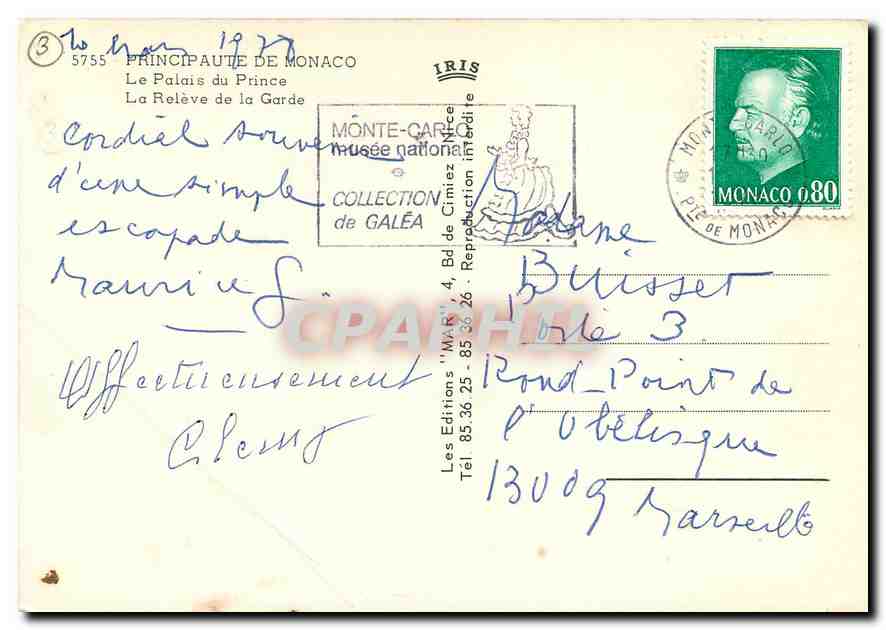 3
10 Mars 1977
5755 PRINCIPAUTE DE MONACO
Le Palais du Prince
La Relève de la Garde
IRIS
MONTE-CARLO
musée national
COLLECTION
de GALÉA
MONACO 0,80
MONTE-CARLO
Pté DE MONACO
Cordial souvenir
d'une simple
escapade
Maurice G.
Affectueusement
Les Editions "MAR", 4, Bd de Cimiez - Nice
Tél. 85.36.25 - 85 36 26 - Reproduction interdite
Madame
Buisset
Porte 3
Rond-Point de
l'Obélisque
13009 Marseille
CPAPHIL